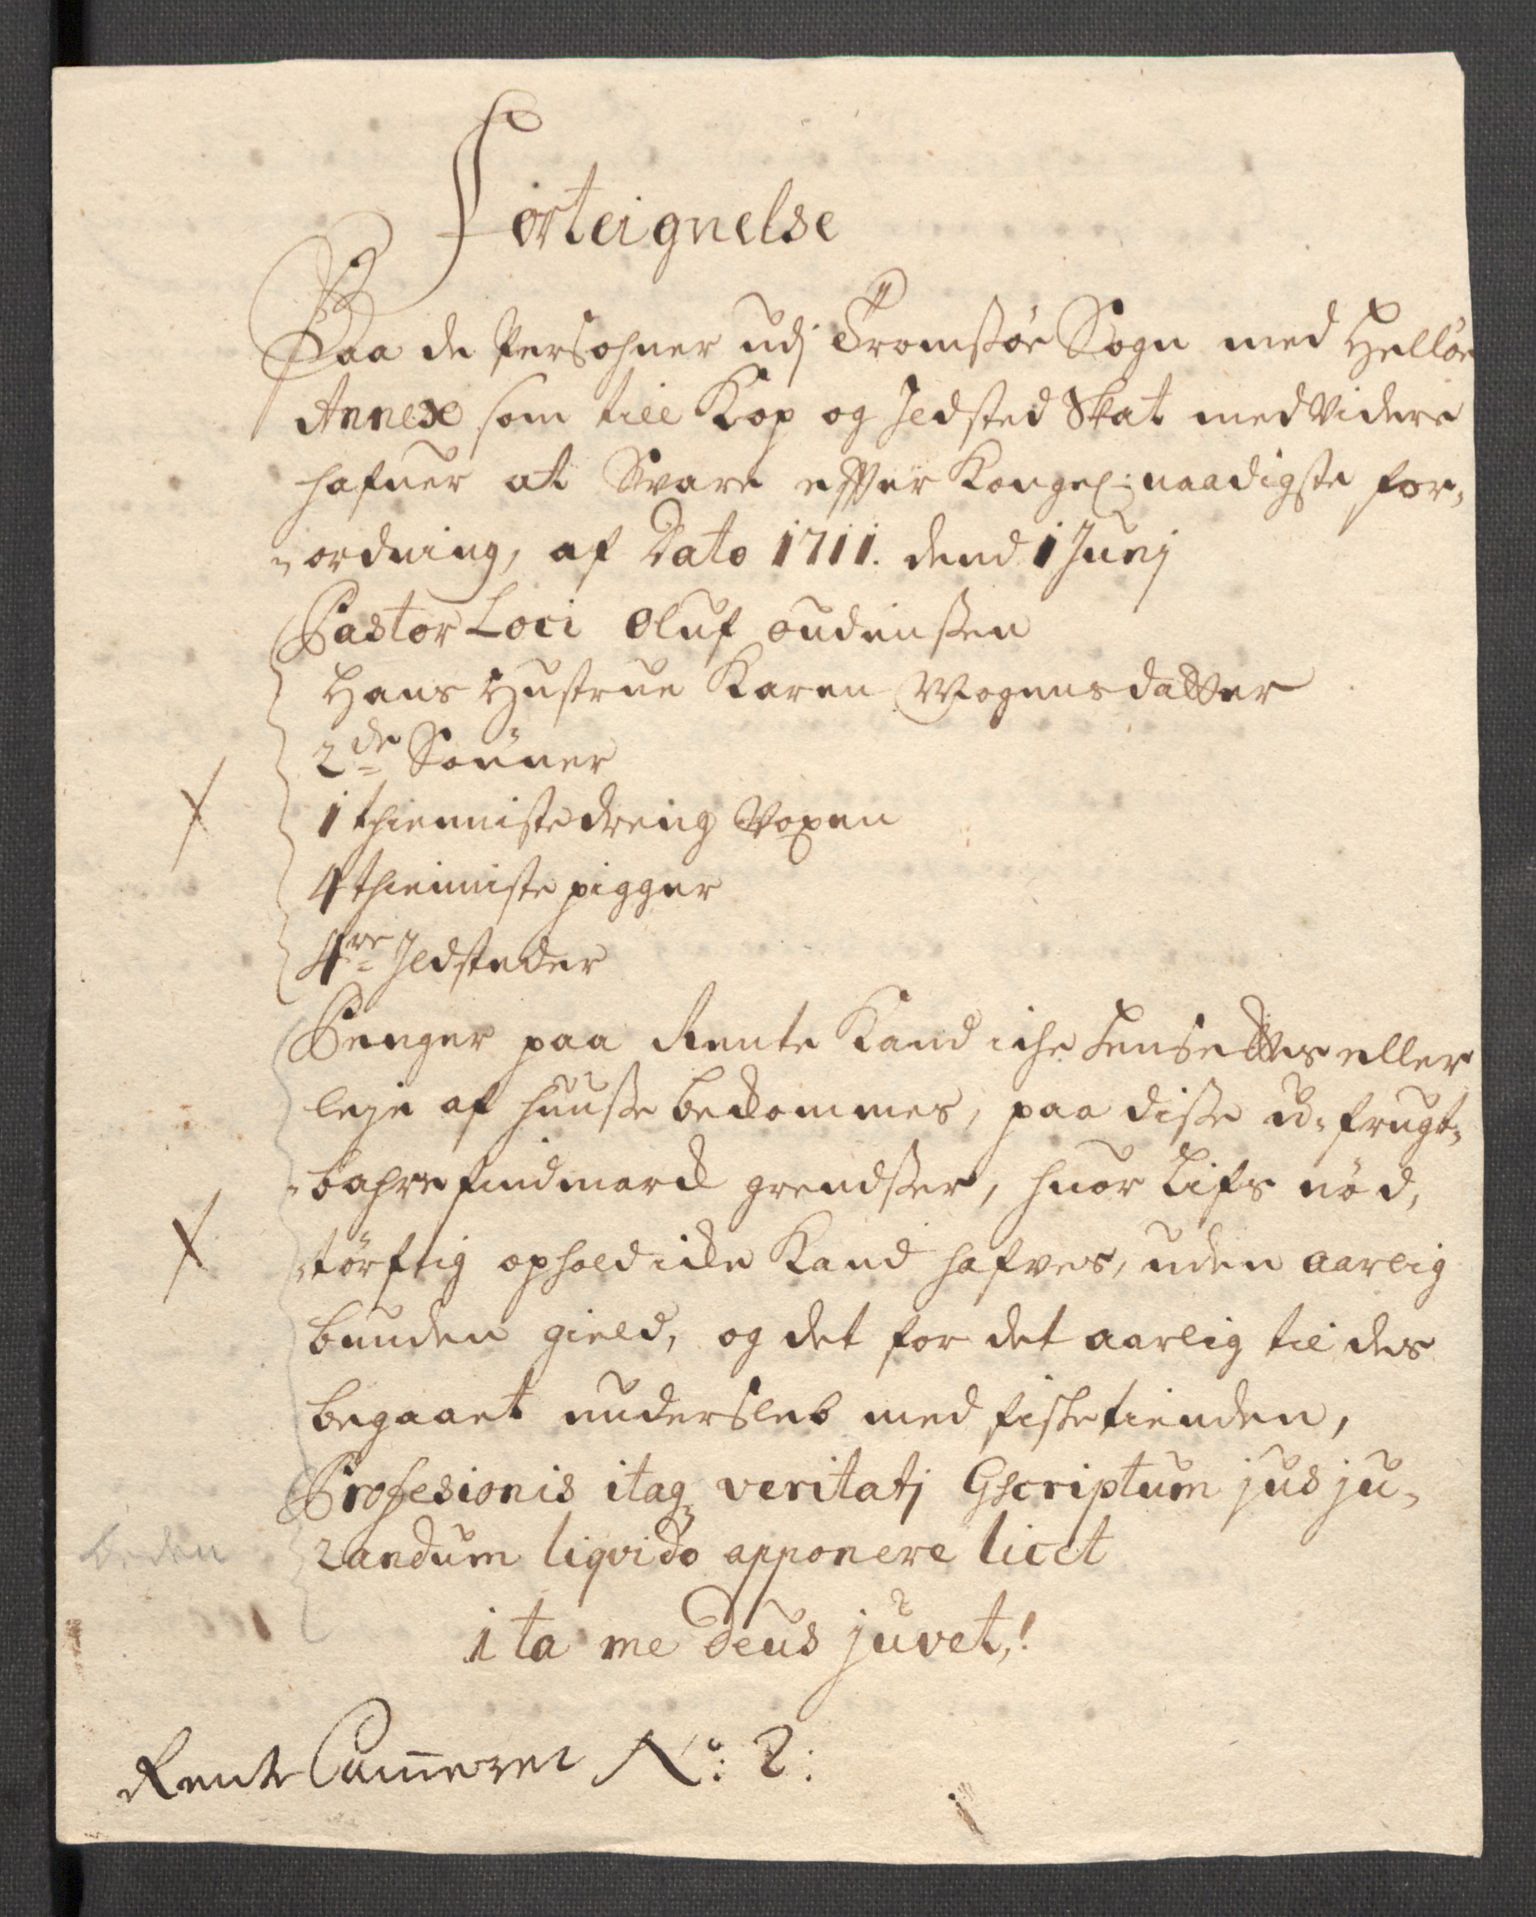 Forteignelse
Paa de Persohner udj Tromsøe Sogn med Helløe
Annex som till Kop og Jldsted Skat med Videre
hafuer at Svare effter Kongel: naadigste for,
ordning, af Dato 1711. dend 1 Junj
Pastor Loci Oluf oudenssen
Hans Hustrue Karen Mogensdatter
2de Sønner
1 thienniste dreng Voxen
4 thienniste pigger
4re Jldsteder
Penger paa Rente Kand iche hensettes eller
leje af huusse bekommes, paa disse u-frugt,
bahre findmark grendsser, huor Lifs nød,
tørftig ophold icke Kand hafves, uden aarlig
bunden gield, og det for det aarlig til des
begaaet undersleb med fiskefienden,
Profesionis itaq veritatj scriptum jus ju,
randum liqvido apponere licet
ita me Deus juvet,!
Rente Cammeret No: 2: